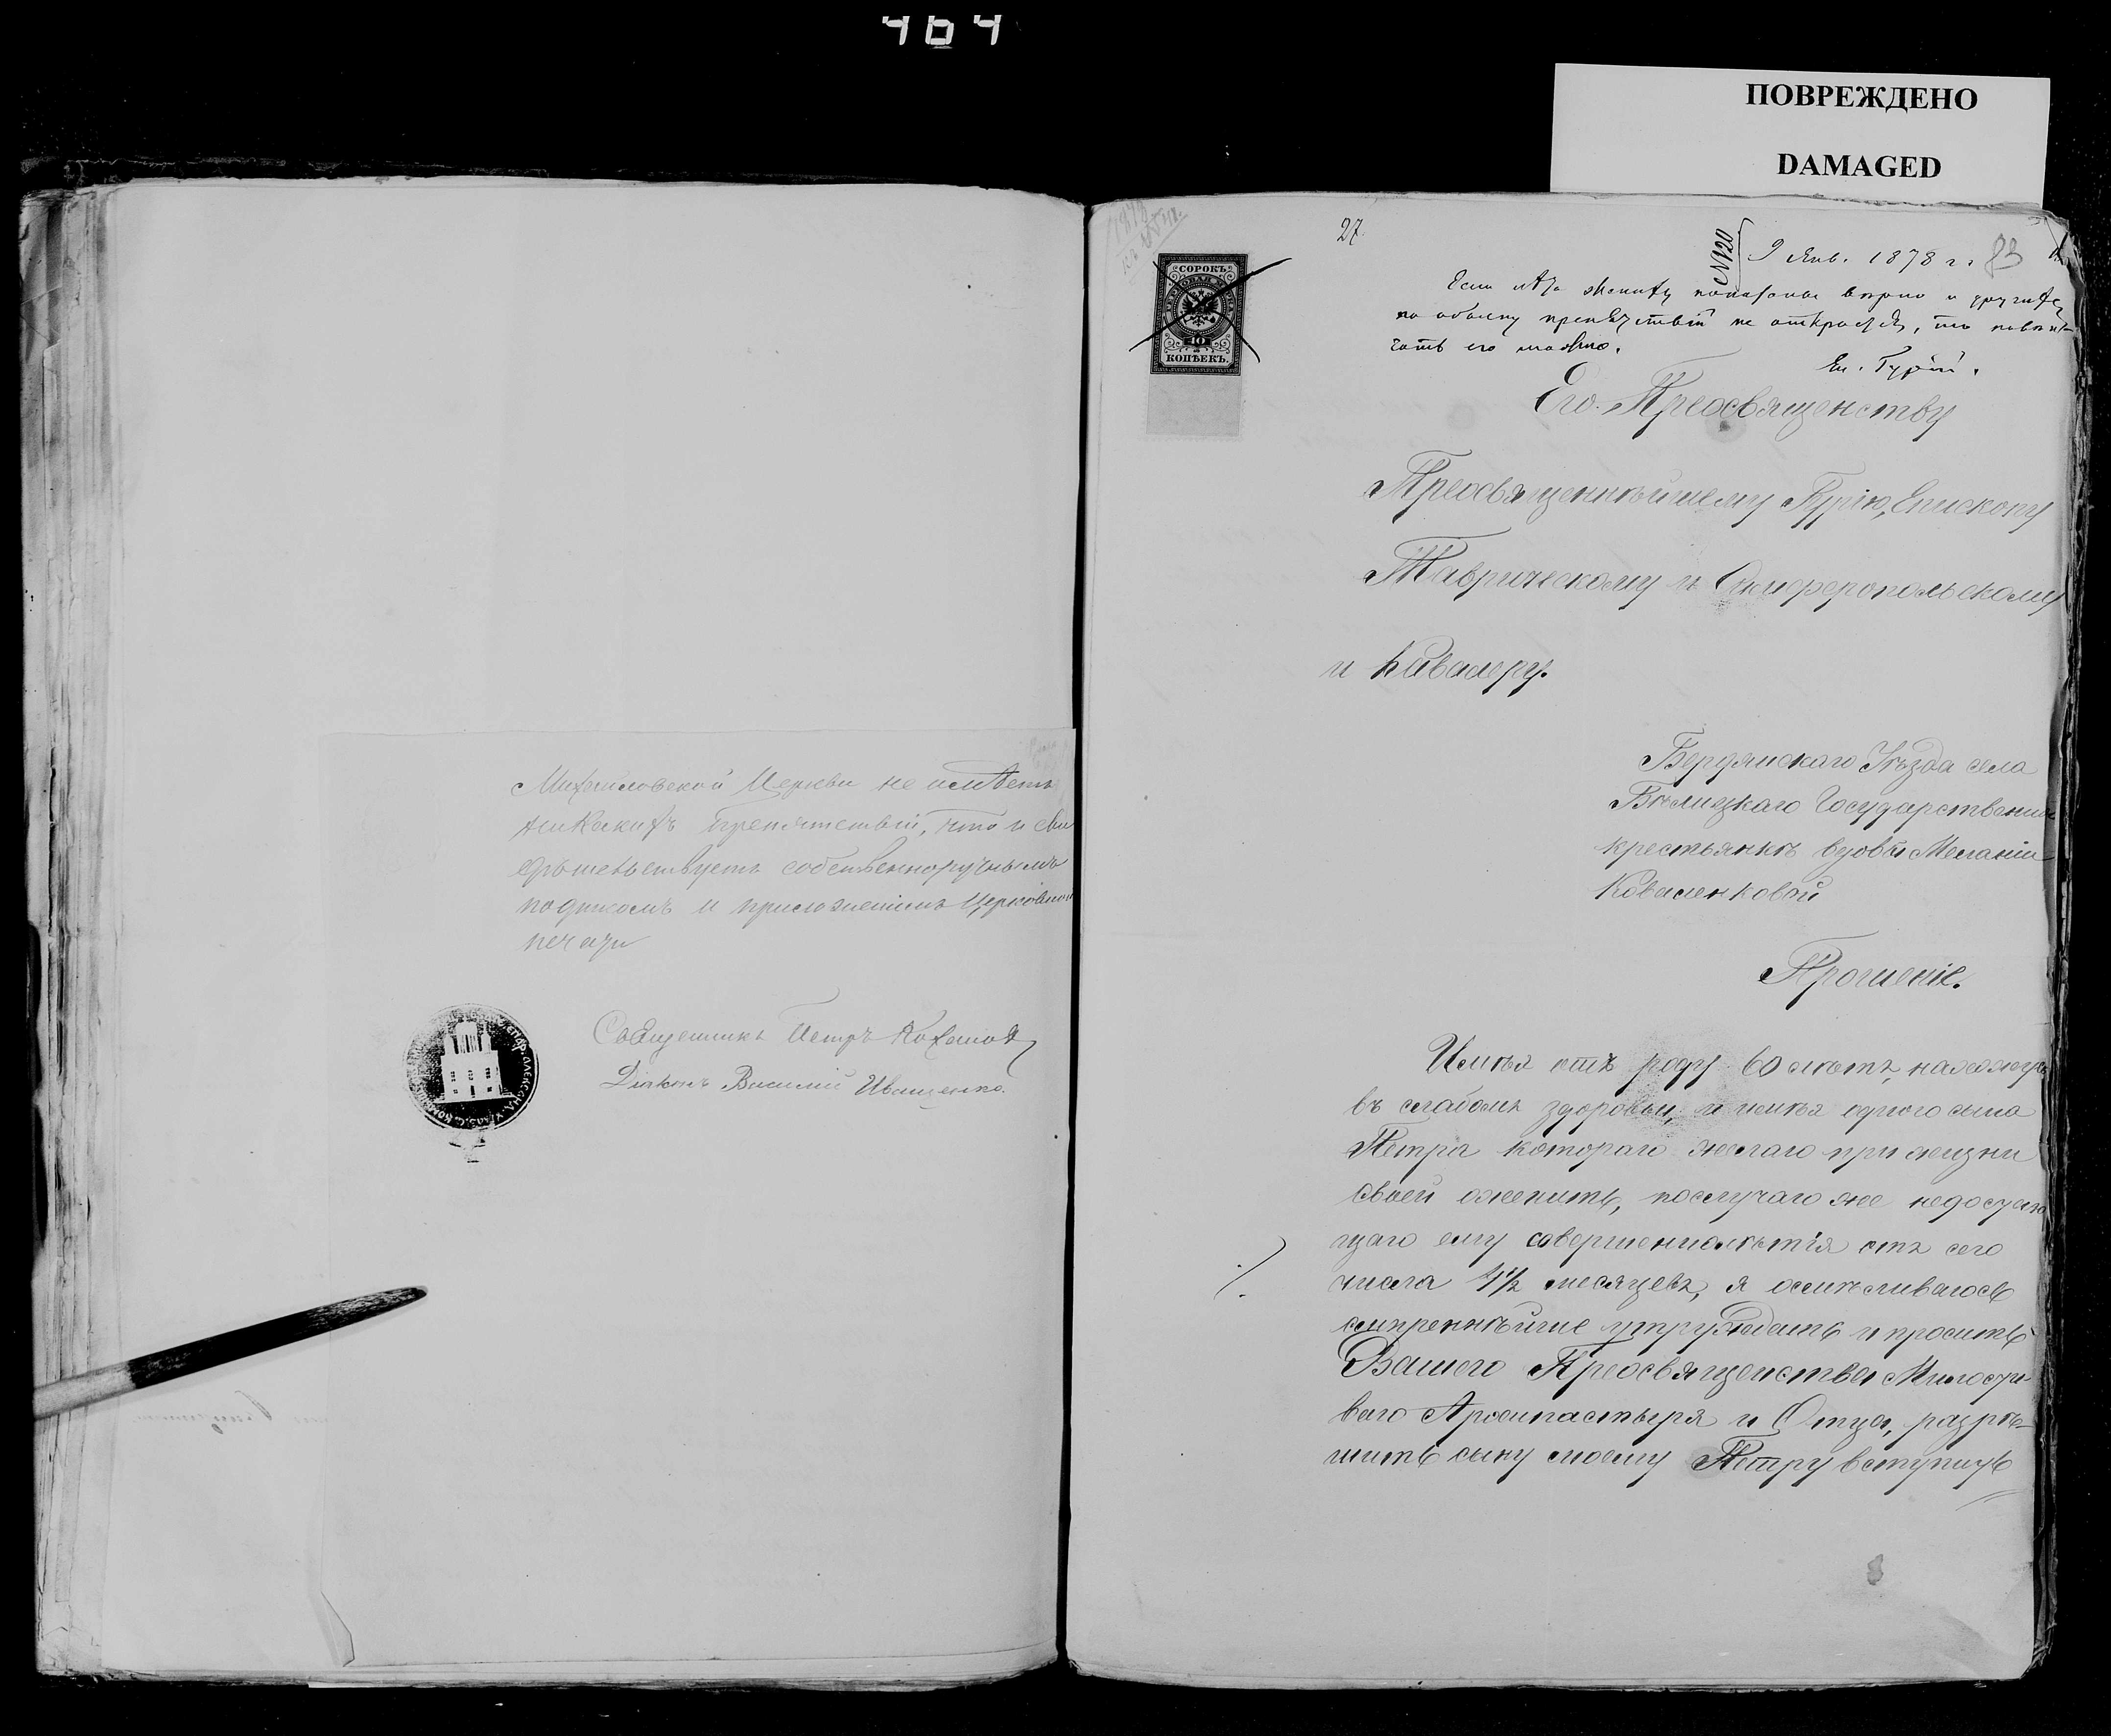 464
ПОВРЕЖДЕНО
DAMAGED
Михайловской Церкви не имѣетъ
никакихъ препятствій, что и сви
дѣтельствуетъ собственноручнымъ
подписомъ и приложеніемъ Церковной
печати
Священникъ Петръ
Діяконъ Василій Иващенко.
27.
№120
9 Янв. 1878 г. 83
СОРОКЪ
40
КОПѢЕКЪ.
Если лѣта жениха показаны вѣрно и другихъ
по обыску препятствій не откроется, то повѣн-
чать его можно.
Еп. Гурій.
Его Преосвященству
Преосвященнѣйшему Гурію, Епископу
Таврическому и Симферопольскому
и Кавалеру.
Бердянскаго Уѣзда села
Бѣлицкаго Государственной
крестьянкѣ вдовы Меланіи
Коваленковой
Прошеніе.
Имѣя отъ роду 60 лѣтъ, нахожусь
въ слабомъ здоровьи, и имѣя одного сына
Петра котораго желаю при жизни
своей оженить, послучаю же недостаю
щаго ему совершеннолѣтія отъ сего
числа 4½ месяцевъ, я осмѣливаюсь
смиреннѣйше утруждать и просить
Вашего Преосвященства Милости
ваго Архипастыря и Отца, разрѣ-
шить сыну моему Петру вступить